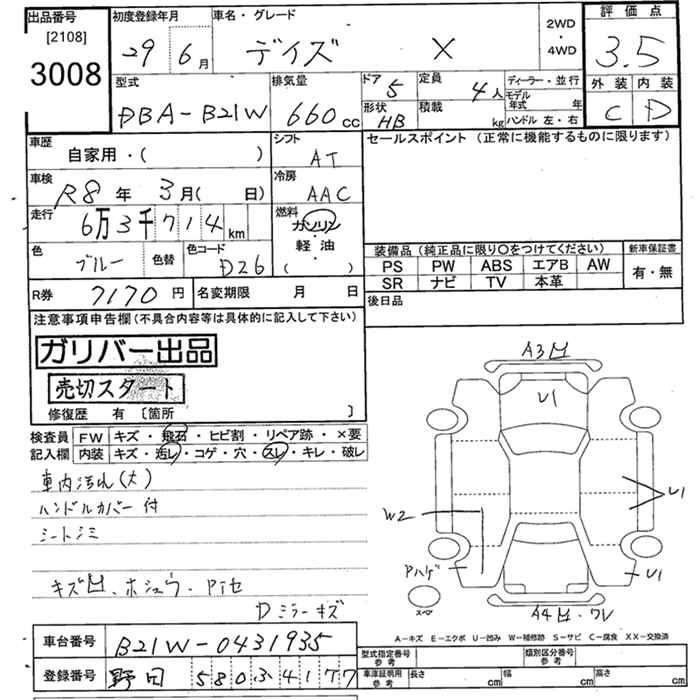 出品番号 初度登録年月 車名・グレード 2WD ・ 4WD 評価点
[2108] 3008 29 6月 デイズ X 3.5
型式 排気量 ドア 5 定員 4人 ディーラー・並行 外装 内装
DBA-B21W 660cc 形状 HB 積載 kg モデル年式 年 ハンドル 左・右 C D
車歴 自家用・( ) シフト AT セールスポイント (正常に機能するものに限ります)
車検 R8年 3月( 日) 冷房 AAC
走行 6万3千714km 燃料 ガソリン・軽油 ( )
色 ブルー 色替 色コード D26
装備品 (純正品に限り〇をつけてください) 新車保証書
PS PW ABS エアB AW 有・無
SR ナビ TV 本革
R券 7170円 名変期限 月 日 後日品
注意事項申告欄 (不具合内容等は具体的に記入して下さい)
ガリバー出品
売切スタート
修復歴 有 〔箇所 〕
検査員 FW キズ・飛石・ヒビ割・リペア跡・×要
記入欄 内装 キズ・汚レ・コゲ・穴・スレ・キレ・破レ
車内汚れ(大)
ハンドルカバー付
シートシミ
キズ凹、ホシュウ・
Dミラーキズ
A3凹
U1
U1
W2
Pハゲ
U1
スペア
A4凹・
A-キズ E-エクボ U-凹み W-補修跡 S-サビ C-腐食 XX-交換済
車台番号 B21W-0431935 型式指定番号 参考 類別区分番号 参考
登録番号 野田 580 4177 車庫証明用 参考 長さ cm 幅 cm 高さ cm